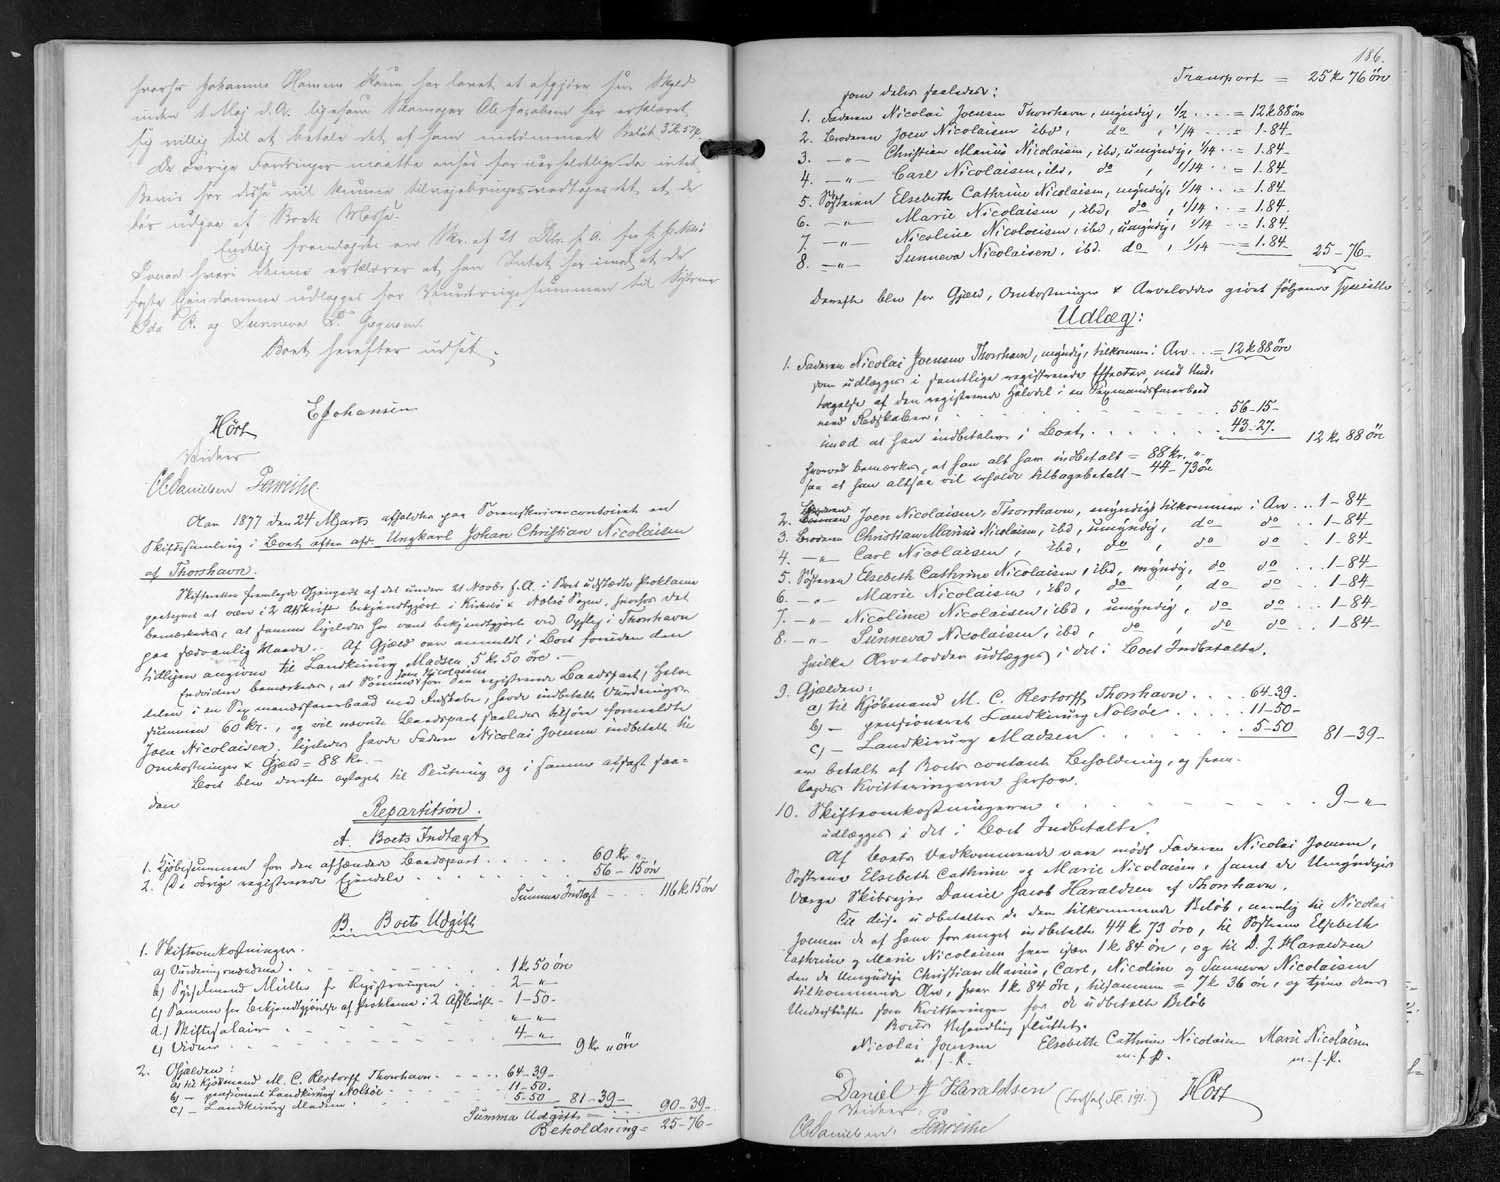 hvorfor Johanne Hammer Kann har lovet at afgjøre sin Skyld
inden 1 Maj d. A. ligesom Skomager Ole Jacobsen har erklæret
sig villig til at betale det af ham
De øvrige Fordringer maatte ansees for uerholdelige da intet
Beviis for disse vil kunne tilveiebringes vedtoges det, at de
bør udgaa af Boets Masse.
Endelig fremlagdes en Skr. af 21 Dcbr. f. A. fra
hvori denne erklærer at han Intet har imod at de
faste Eiendomme udlægges for Vurderingssummen til Søstrene
Ida C. og Sunneva D.
Boet herefter udsat.
EJohansen
Hört
Vidner
CCDanielsen
Aar 1877 den 24 Marts afholdtes paa Sorenskrivercontoiret en
Skiftesamling i Boet efter afd. Ungkarl Johan Christian Nicolaisen
af Thorshavn.
Skifteretten fremlagde Gjenpart af det under 21 Novbr. f. A. i Boet udstædte Proklama
paategnet at være i 2 Afskrift bekjendtgjort i Kirkebø & Nolsø Sogn, hvorhos det
bemærkedes, at samme ligeledes har været bekjendtgjort ved Opslag i Thorshavn
paa sædvanlig Maade. Af Gjæld var anmeldt i Boet foruden den
tidligere angivne til Landkirurg Madsen 5 kr. 50 øre. —
Endvidere bemærkedes, at Sønnen Joen Nicolaisen for den registrerede Baadspart, Halv-
delen i en Sexmandsfarerbaad med Redskaber, havde indbetalt Vurderings-
summen 60 kr., og vil nævnte Baadspart saaledes tilhøre formeldte
Joen Nicolaisen. ligeledes havde Faderen Nicolai Joensen indbetalt til
Omkostninger & Gjæld = 88 kr. —
Boet blev derefter optaget til Slutning og i samme afsagt saa-
den
Repartition.
A. Boets Indtægt
1. Kjøbesummen for den afhændede Baadspart . . . . . 60 kr. "
2. De øvrige registrerede Eiendele . . . . . 56 — 15 øre
Summa Indtægt — . . 116 kr 15 øre
B. Boets Udgift
1. Skifteomkostninger.
a) Vurderingsmændene . . . . 1 kr. 50 øre
b) Sysselmand Müller for Registreringen . . 2 — "
c) Samme for bekjendtgjørelse af Proklama i 2 Afskrift — 1-50.
d.) Skiftesalair . . . . " — "
e) Vidner . . . . 4 — " . 9 kr. " øre
2. Gjælden:
a) til Kjøbmand M. C. Restorff Thorshavn . . . 64-39-
b) — pensioneret Landkirurg Nolsøe . . . 11-50.
c) — Landkirurg Madsen . . . 5-50 81-39-
Summa Udgift — 90-39-
Beholdning = 25-76-
186.
Transport = 25 kr 76 öre
som deles saaledes:
1. Faderen Nicolai Joensen Thorshavn, myndig, 1/2 . . . . = 12 k 88 öre
2. Broderen Joen Nicolaisen ibd, do , 1/14 . . . = 1.84-
3. — " — Christian Marius Nicolaisen, ibd, umyndig, 1/14 . . = 1.84-
4. — " — Carl Nicolaisen, ibd, do , 1/14 . . = 1.84-
5. Søsteren Elsebeth Cathrine Nicolaisen, myndig, 1/14 . . = 1.84-
6. — " — Marie Nicolaisen, ibd, do , 1/14 . . = 1.84-
7. — " — Nicoline Nicolaisen, ibd, umyndig, 1/14 . . = 1.84-
8. — " — Sunneva Nicolaisen, ibd. do , 1/14 — = 1.84- 25-76-
Derefter blev for Gjæld, Omkostninger & Arvelodder gjort følgende specielle
Udlæg:
1. Faderen Nicolai Joensen Thorshavn, myndig, tilkommer i Arv . . = 12 k 88 öre
som udlægges i samtlige registrerede Effecter, med Und-
tagelse af den registrerede Halvdel i en Sexmandsfarerbaad
med Redskaber, . . . . . 56-15-
imod at han indbetaler i Boet, . . . . . 43-27. 12 kr 88 öre
hvorved bemærkes, at han alt har indbetalt = 88 kr. "
saa at han altsaa vil erholde tilbagebetalt — 44-73 öre
2. Broderen Joen Nicolaisen, Thorshavn, myndig, tilkommer i Arv . . . 1-84-
3. Broderen Christian Marius Nicolaisen, ibd, umyndig, do do . . 1-84-
4. — " — Carl Nicolaisen, ibd, do , do do . 1-84-
5. Søsteren Elsebeth Cathrine Nicolaisen, ibd, myndig, do do . . . 1-84-
6. — " — Marie Nicolaisen, ibd, do , do do . . . 1-84-
7. — " — Nicoline Nicolaisen, ibd, umyndig, do do . . . 1-84-
8. — " — Sunneva Nicolaisen, ibd, do , do do . . . 1-84-
hvilke Arvelodder udlægges i det i Boet Indbetalte.
9. Gjælden:
a) til Kjöbmand M. C. Restorff Thorshavn . . . . 64-39-
b) — pensioneret Landkirurg Nolsøe . . . . . 11-50-
c) — Landkirurg Madsen . . . . . . 5-50 81-39-
er betalt af Boets contante Beholdning, og frem-
lagdes Kvitteringerne herfor.
10. Skifteomkostningerne . . . . . 9 — " —
udlægges i det i Boet Indbetalte.
Af Boets Vedkommende var mødt Faderen Nicolai Joensen,
Søstrene Elsebeth Cathrine og Marie Nicolaisen, samt de Umyndiges
Værge Skibsrejer Daniel Jacob Haraldsen af Thorshavn.
Til disse udbetaltes de dem tilkommende Beløb, nemlig til Nicolai
Joensen de af ham formeget indbetalte 44 kr 73 öre, til Søstrene Elsebeth
Cathrine og Marie Nicolaisen hver især 1 kr. 84 øre, og til D. J. Haraldsen
den de Umyndige Christian Marius, Carl, Nicoline og Sunneva Nicolaisen
tilkommende Arv, hver 1 kr 84 öre, tilsammen = 7 kr 36 öre, og tjene deres
Underskrifter som Kvitteringer for de udbetalte Beløb
Boets Behandling sluttet.
Nicolai Joensen Elsebeth Cathrine Nicolaisen Marie Nicolaisen
m. f. P. m. f. P. m. f. P.
Daniel J Haraldsen (Fortsat Fol. 191.) Hört
Vidner:
CCDanielsen.